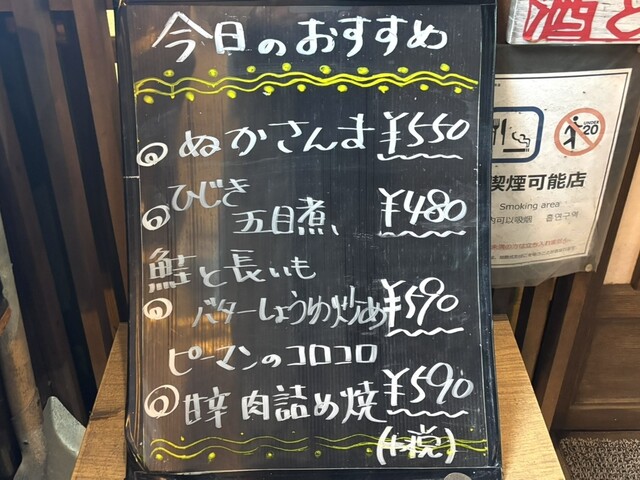 今日のおすすめ
ぬかさんま ¥550
ひじき
五目煮、 ¥480
鮭と長いも
バターしょうゆ炒め ¥590
ピーマンのコロコロ
甘辛肉詰め焼 ¥590
(+税)
酒と
UNDER 20
喫煙可能店
Smoking area
内可以吸烟 흡연구역